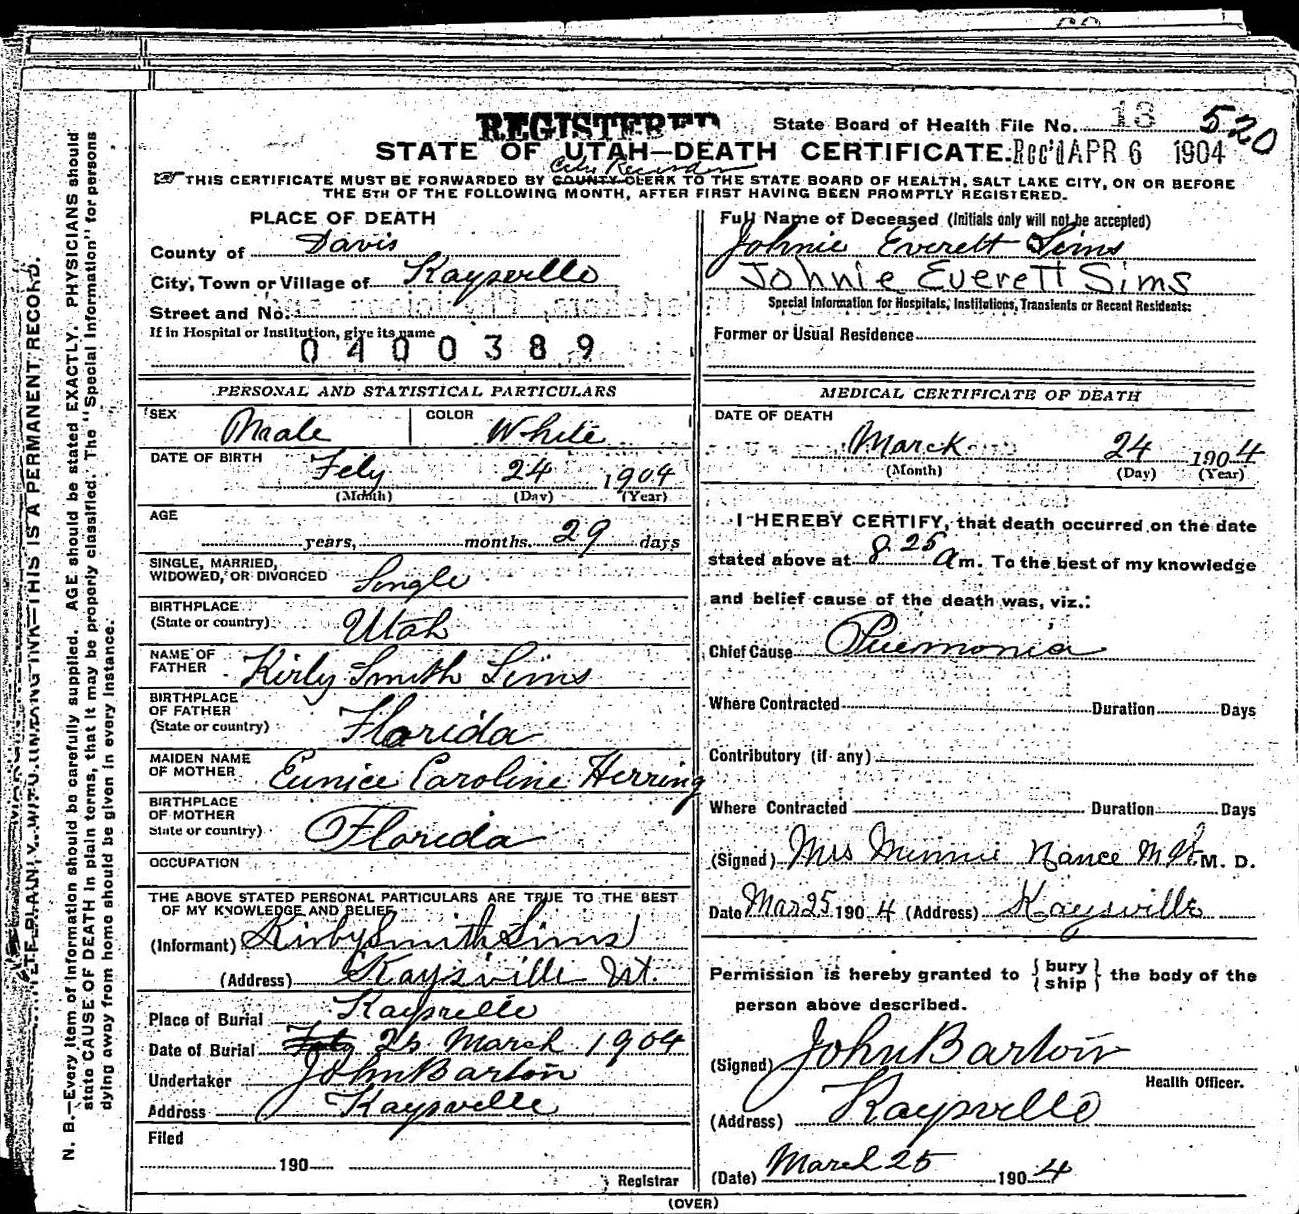 REGISTERED
State Board of Health File No. 13 520
STATE OF UTAH—DEATH CERTIFICATE. Rec'd APR 6 1904
City Recorder
THIS CERTIFICATE MUST BE FORWARDED BY COUNTY CLERK TO THE STATE BOARD OF HEALTH, SALT LAKE CITY, ON OR BEFORE
THE 5TH OF THE FOLLOWING MONTH, AFTER FIRST HAVING BEEN PROMPTLY REGISTERED.
PLACE OF DEATH
County of Davis
City, Town or Village of Kaysville
Street and No.
If in Hospital or Institution, give its name
0400389
Full Name of Deceased (Initials only will not be accepted)
Johnie Everett Sims
Johnie Everett Sims
Special Information for Hospitals, Institutions, Transients or Recent Residents:
Former or Usual Residence
PERSONAL AND STATISTICAL PARTICULARS
SEX Male COLOR White
DATE OF BIRTH Feby 24 1904
(Month) (Day) (Year)
AGE
years, months. 29 days
SINGLE, MARRIED,
WIDOWED, OR DIVORCED Single
BIRTHPLACE
(State or country) Utah
NAME OF
FATHER Kirby Smith Sims
BIRTHPLACE
OF FATHER
(State or country) Florida
MAIDEN NAME
OF MOTHER Eunice Caroline Herring
BIRTHPLACE
OF MOTHER
State or country) Florida
OCCUPATION
THE ABOVE STATED PERSONAL PARTICULARS ARE TRUE TO THE BEST
OF MY KNOWLEDGE AND BELIEF
(Informant) Kirby Smith Sims
(Address) Kaysville Ut.
Place of Burial Kaysville
Date of Burial 25 March 1904
Undertaker John Barton
Address Kaysville
Filed
190
Registrar
MEDICAL CERTIFICATE OF DEATH
DATE OF DEATH
March 24 1904
(Month) (Day) (Year)
I HEREBY CERTIFY, that death occurred on the date
stated above at 8 25 a m. To the best of my knowledge
and belief cause of the death was, viz.:
Chief Cause Puemonia
Where Contracted Duration Days
Contributory (if any)
Where Contracted Duration Days
(Signed) Mrs Minnie Nance M. D.
Date Mar 25 1904 (Address) Kaysville
Permission is hereby granted to { bury ship } the body of the
person above described.
(Signed) John Barton
Health Officer.
(Address) Kaysville
(Date) March 25 1904
(OVER)
THIS IS A PERMANENT RECORD.
N. B.—Every item of information should be carefully supplied. AGE should be stated EXACTLY. PHYSICIANS should
state CAUSE OF DEATH in plain terms, that it may be properly classified. The "Special Information" for persons
dying away from home should be given in every instance.